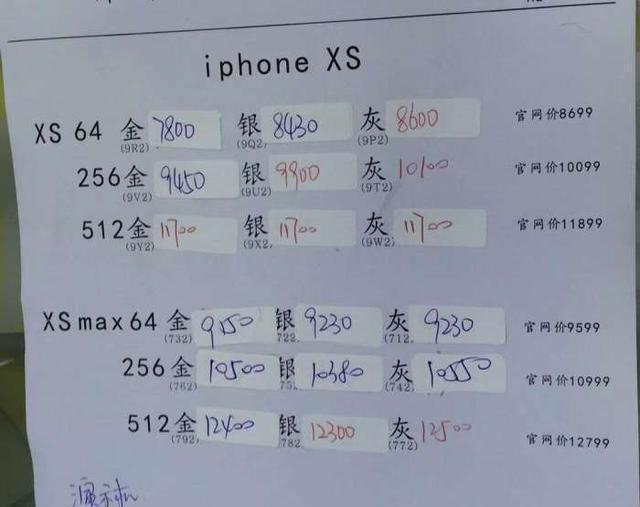 iphone XS
XS 64 金 7800 银 8430 灰 8600 官网价8699
(9R2) (9Q2, (9P2)
256金 9450 银 9900 灰 10100 官网价10099
(9V2) (9U2) (9T2)
512金 11700 银 11700 灰 11700 官网价11899
(9Y2) (9X2, (9W2)
XS max 64 金 9150 银 9230 灰 9230 官网价9599
(732) 722, (712,
256 金 10500 银 10380 灰 10550 官网价10999
(762) (742)
512金 12400 银 12300 灰 12500 官网价12799
(792, 782, (772)
演示机